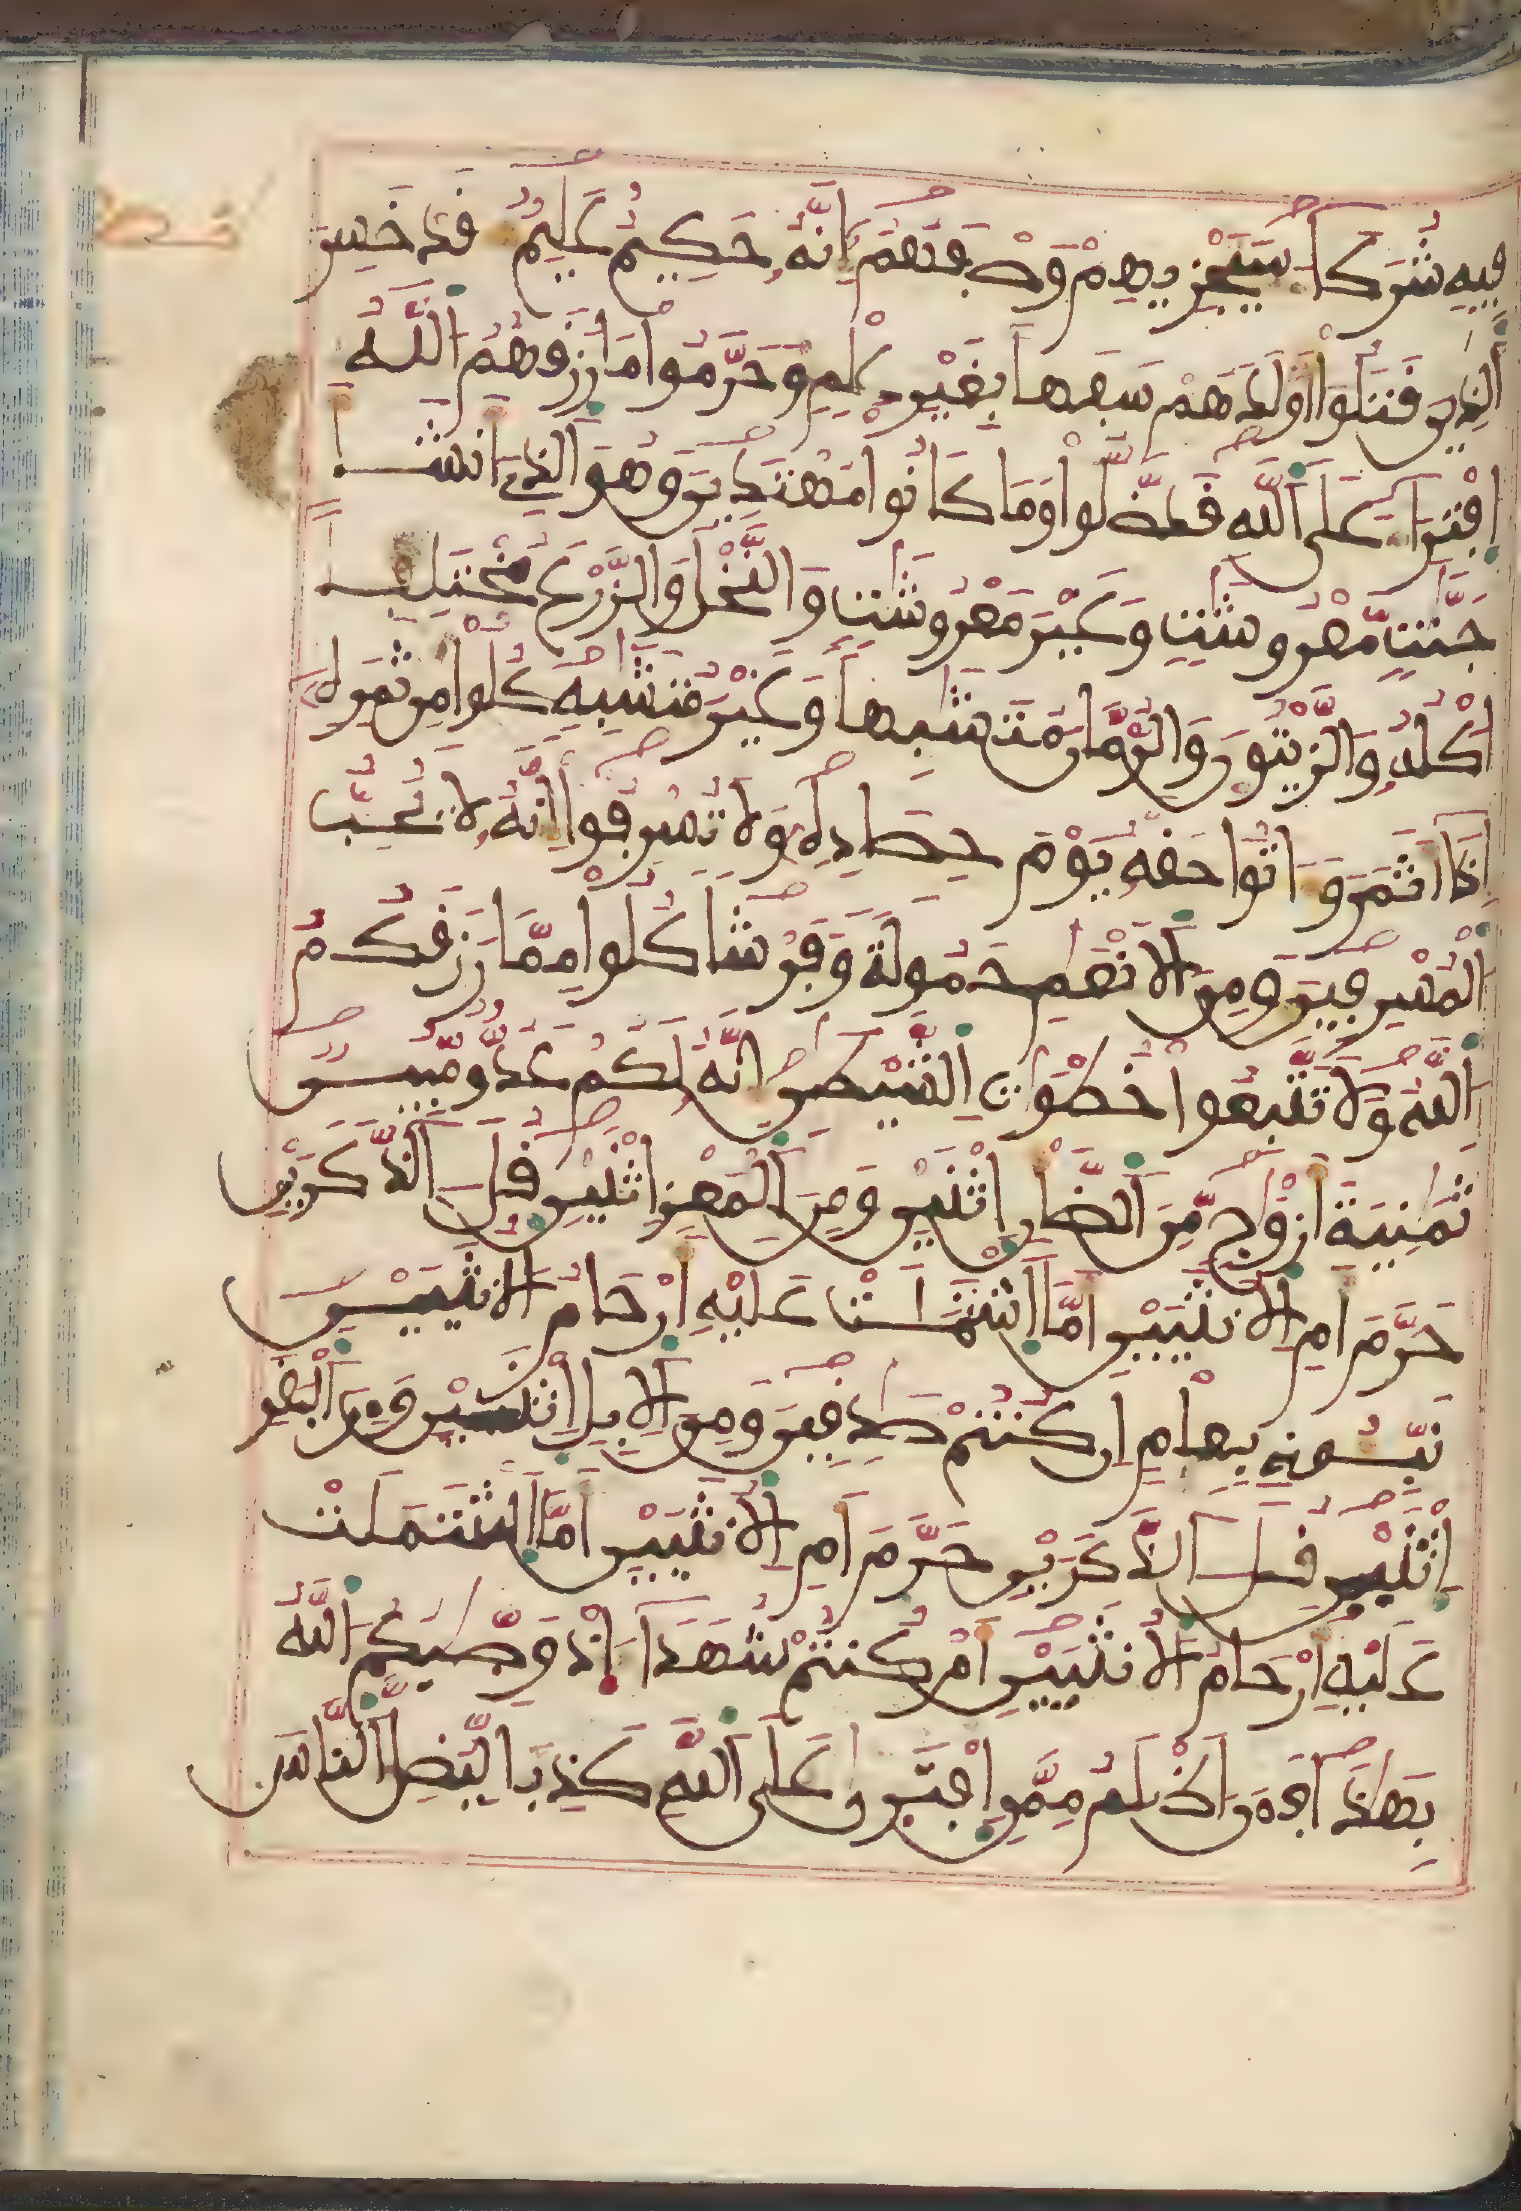 فيه شركا سيجزيهم وصفهم إنه حكيم عليم قد خسر
الذين قتلوا أولدهم سفها بغير علم وحرموا ما رزقهم الله
افترا على الله قد ضلوا وما كانوا مهتدين وهو الذي أنشأ
جنت معروشت وغير معروشت والنخل والزرع مختلفا
أكله والزيتون والرمان متشبها وغير متشبه كلوا من ثمره
إذا أثمر وءاتوا حقه يوم حصاده ولا تسرفوا إنه لا يحب
المسرفين ومن الأنعم حمولة وفرشا كلوا مما رزقكم
الله ولا تتبعوا خطوت الشيطن إنه لكم عدو مبين
ثمنية أزوج من الضأن اثنين ومن المعز اثنين قل ءالذكرين
حرم أم الأنثيين أما اشتملت عليه أرحام الأنثيين
نبئوني بعلم إن كنتم صدقين ومن الإبل اثنين ومن البقر
اثنين قل ءالذكرين حرم أم الأنثيين أما اشتملت
عليه أرحام الأنثيين أم كنتم شهدا إذ وصيكم الله
بهذا فمن أظلم ممن افترى على الله كذبا ليضل الناس